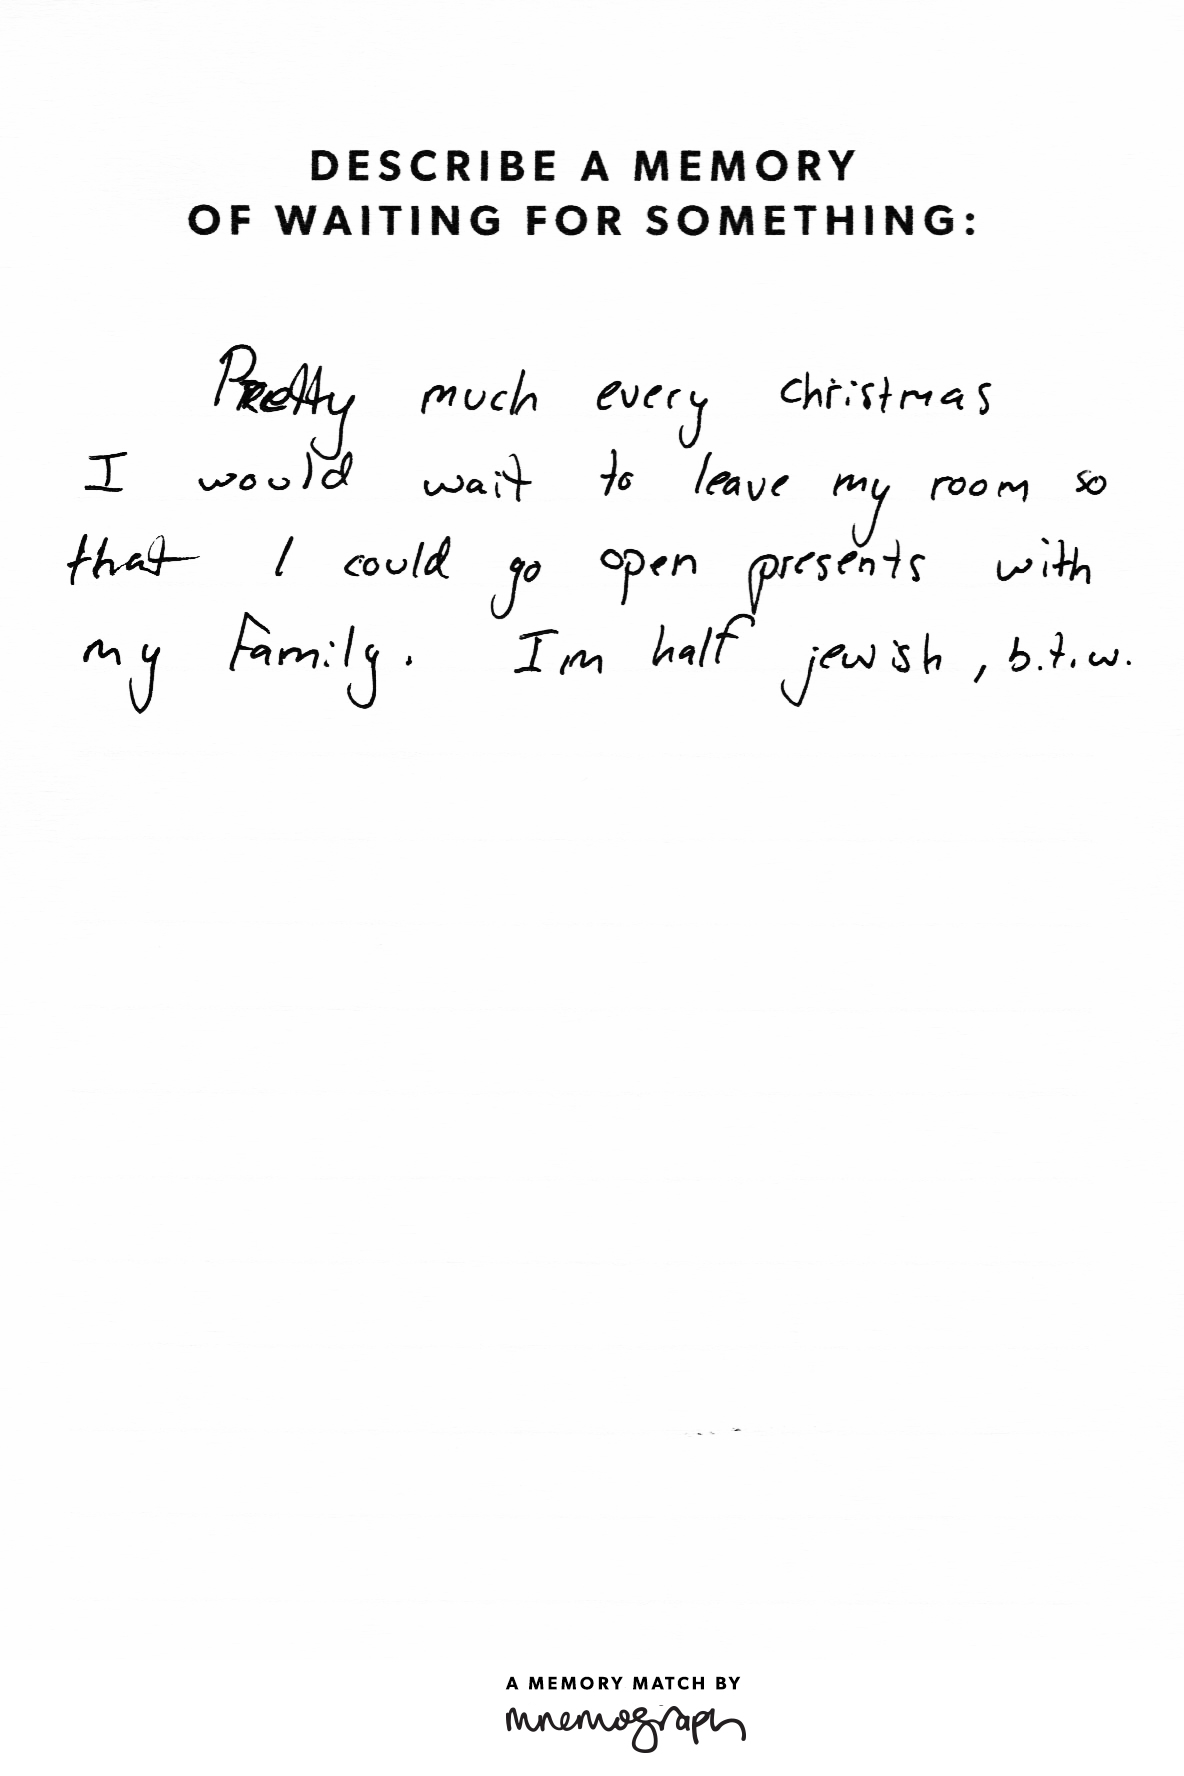 DESCRIBE A MEMORY
OF WAITING FOR SOMETHING:
Pretty much every christmas
I would wait to leave my room so
that I could go open presents with
my Family. Im half jewish, b.t.w.
A MEMORY MATCH BY
mnemograph